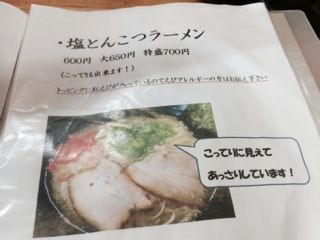 ・塩とんこつラーメン
600円 大650円 特盛700円
(こってりも出来ます!)
トッピングに紅えびが入っているのでえびアレルギーの方はお伝え下さい
こってりに見えて
あっさりしています!